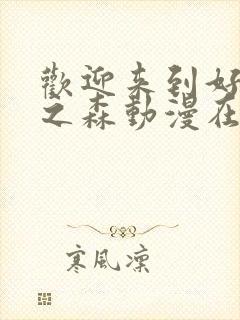 歡迎来到好
之森動漫在
寒風凜